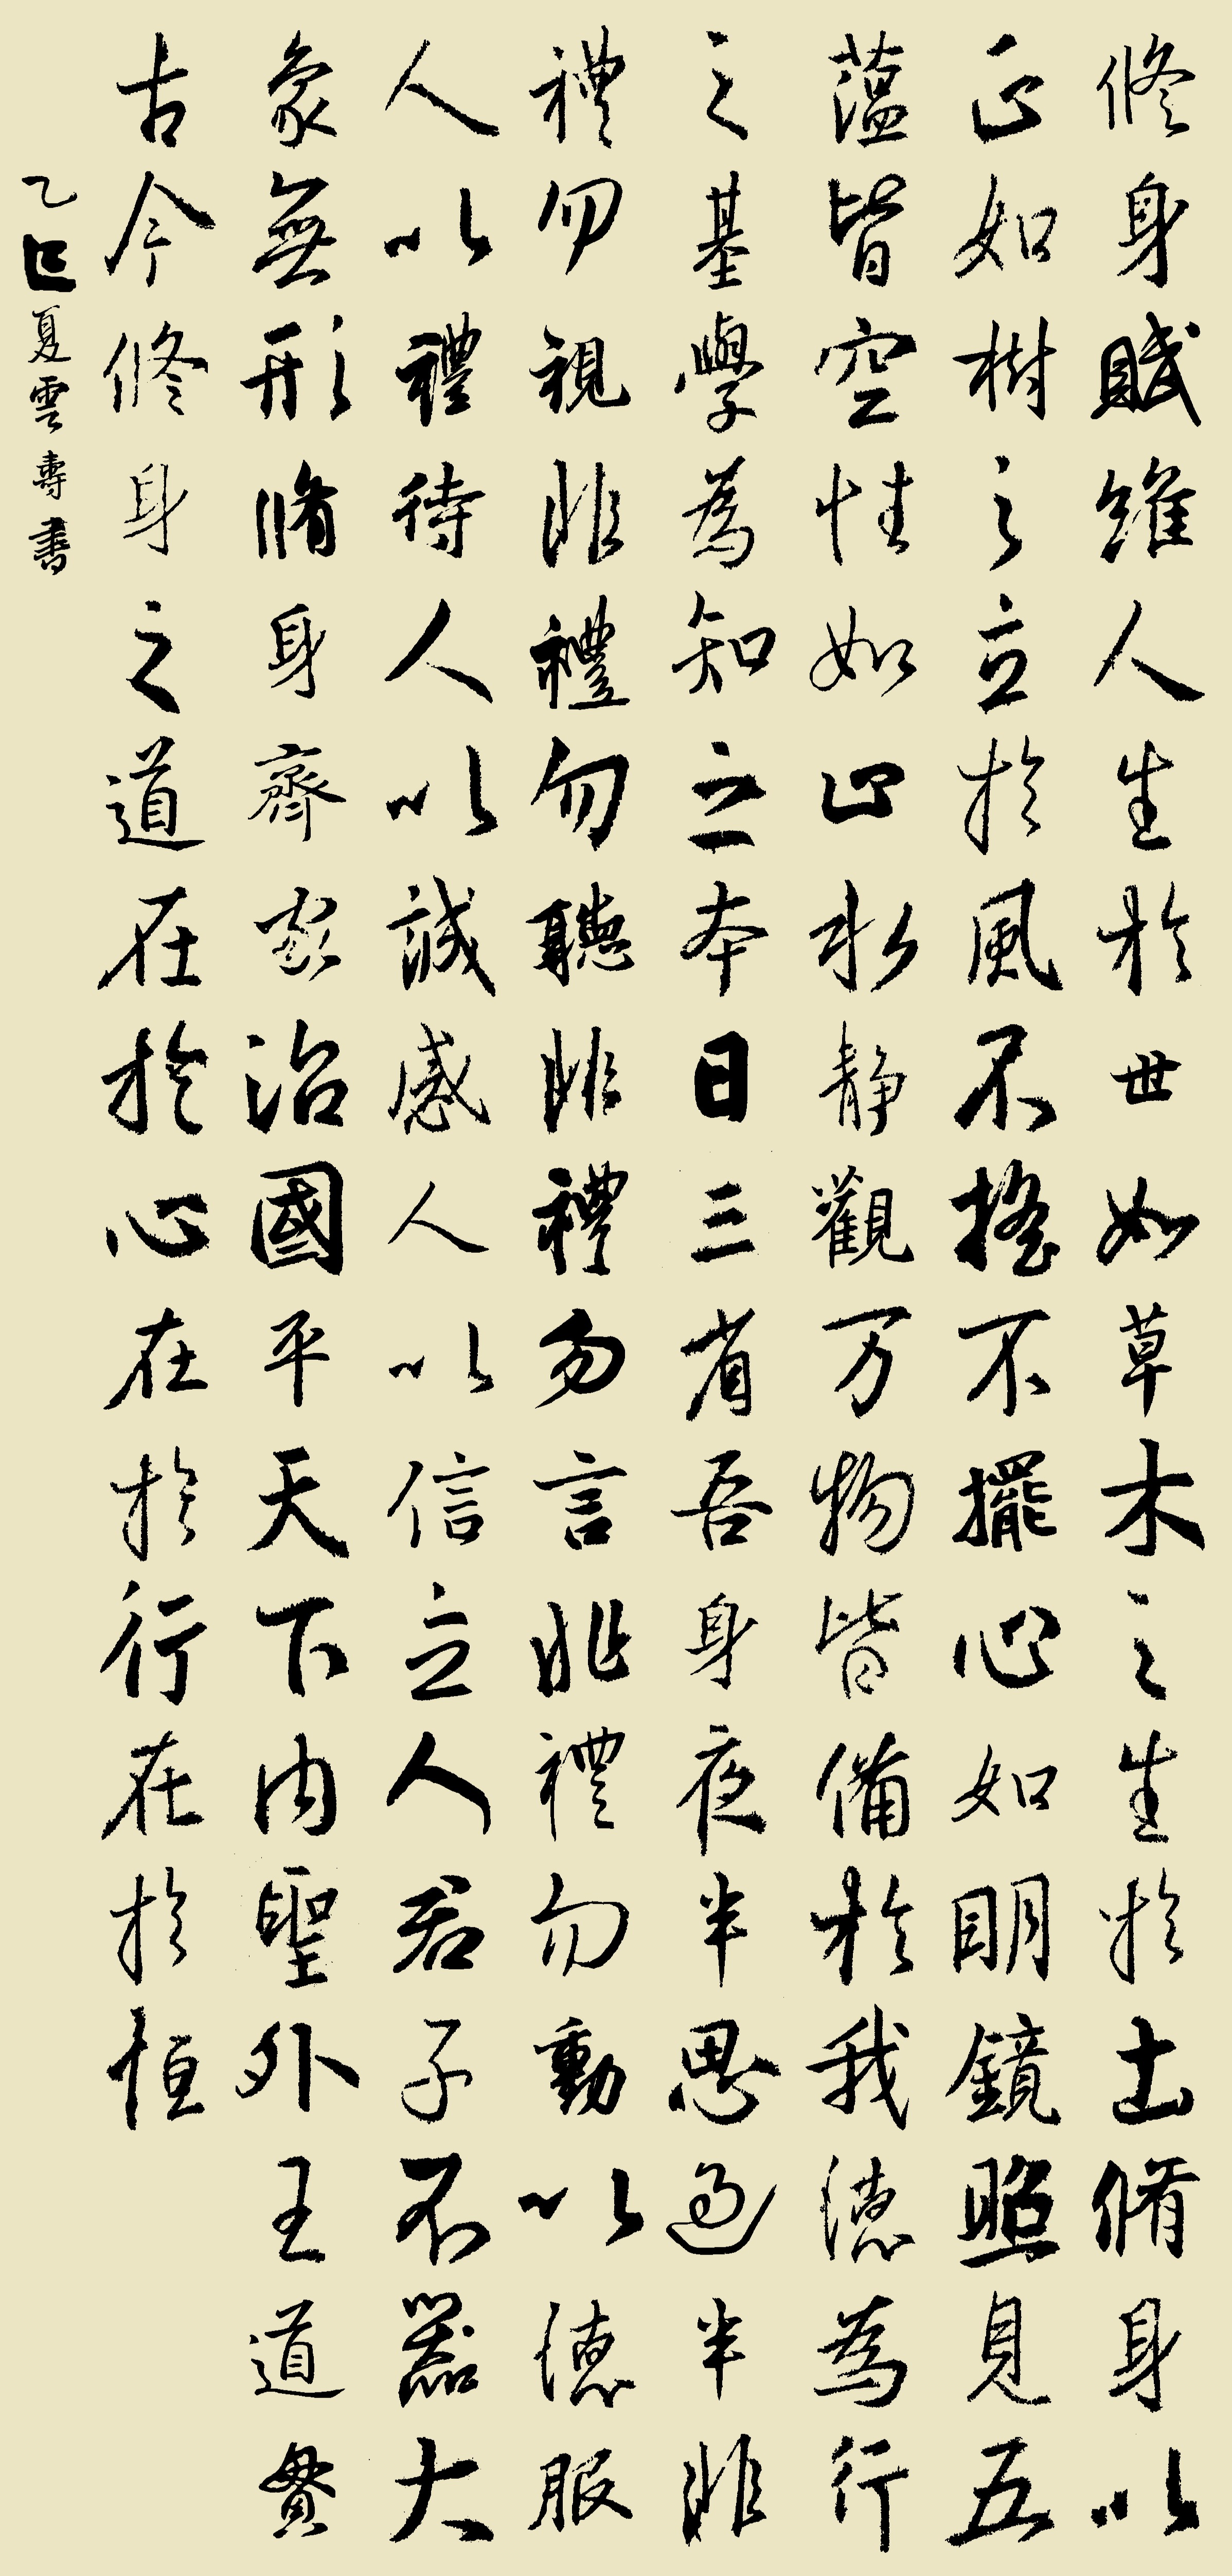 修身賦雖人生於世如草木之生於土脩身以
正如樹之立於風不搖不擺心如明鏡照見五
蕴皆空性如止水静觀万物皆備於我德為行
之基學為知之本日三省吾身夜半思過半非
禮勿視非禮勿聽非禮勿言非禮勿動以德服
人以禮待人以誠感人以信立人君子不器大
象無形脩身齊家治國平天下内聖外王道貫
古今修身之道在於心在於行在於恒
乙巳夏雲壽書